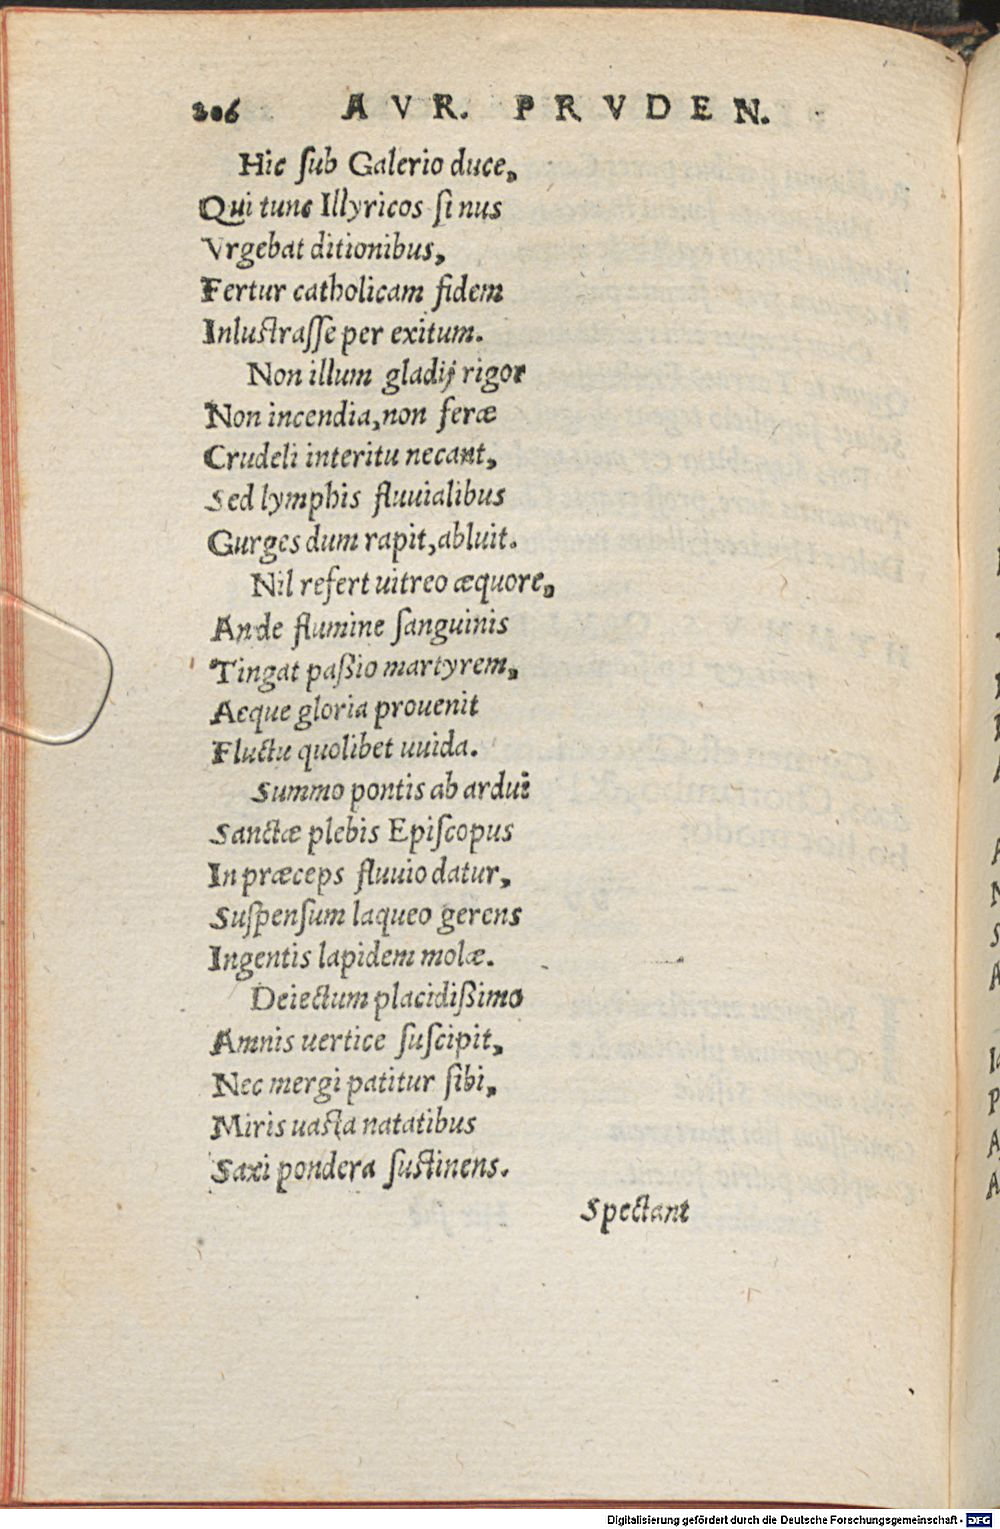 206 AVR. PRVDEN.
Hic ſub Galerio duce,
Qui tunc Illyricos ſinus
Vrgebat ditionibus,
Fertur catholicam fidem
Inluſtraſſe per exitum.
Non illum gladij rigor
Non incendia, non feræ
Crudeli interitu necant,
Sed lymphis fluuialibus
Gurges dum rapit, abluit.
Nil refert uitreo æquore,
An de flumine ſanguinis
Tingat paßio martyrem,
Aeque gloria prouenit
Fluctu quolibet uuida.
Summo pontis ab ardui
Sanctæ plebis Epiſcopus
In præceps fluuio datur,
Suſpenſum laqueo gerens
Ingentis lapidem molæ.
Deiectum placidißimo
Amnis uertice ſuſcipit,
Nec mergi patitur ſibi,
Miris uaſta natatibus
Saxi pondera ſuſtinens.
Spectant
Digitalisierung gefördert durch die Deutsche Forschungsgemeinschaft - DFG